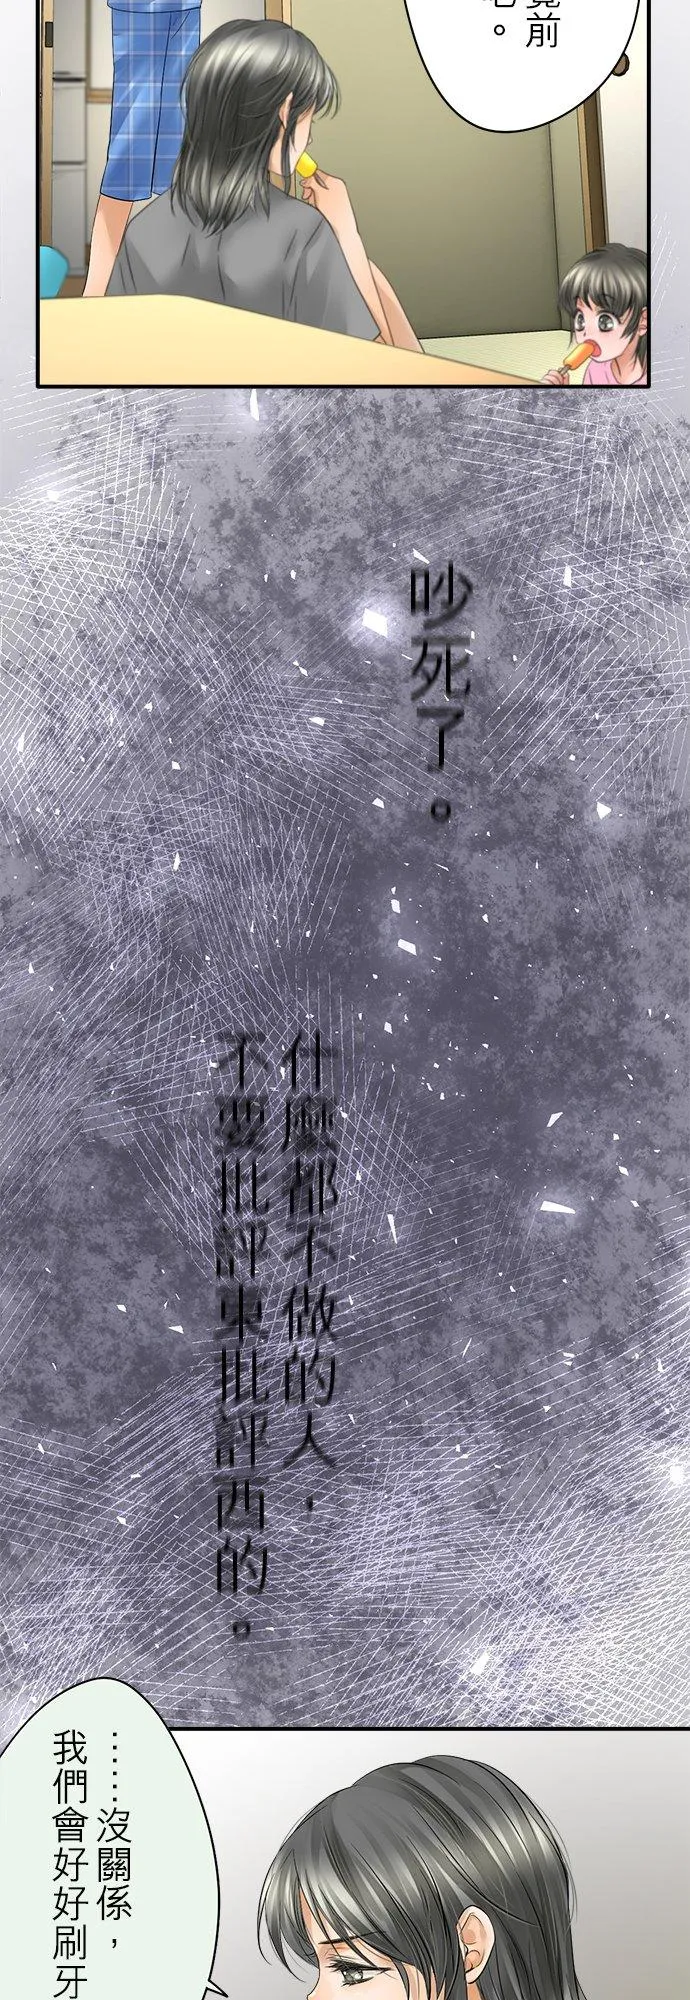 覺前
吧。
吵死了。
什麼都不做的人，
不要批評東批評西的。
……沒關係，
我們會好好刷牙